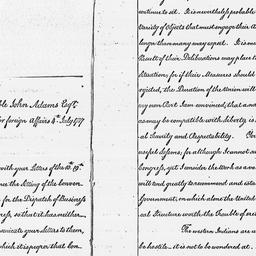 ble John Adams Esqr
for foreign Affairs 4th July 1787
with your Letters of the 10th 19th
nce the sitting of the conven
s for the Dispatch of Business
gress, so that it has neither
municate your Letters to them,
which it is proper that con
continue to sit. It is nevertheless probable
Variety of Objects that must engage their A
longer than many may expect. It is m
Result of their Deliberations may place t
Situation, for if their Measures should
rejected, the Duration of the Union will
my own Part I am convinced, that a na
as may be compatible with Liberty, is
al Security and Respectability. Yo
useful Lessons, for although I cannot su
Congress, yet I consider the Work as a va
will tend greatly to recommend and esta
Government, on which alone the United
cal Structure with the Trouble of e
The western Indians are u
be hostile — it is not to be wondered at.